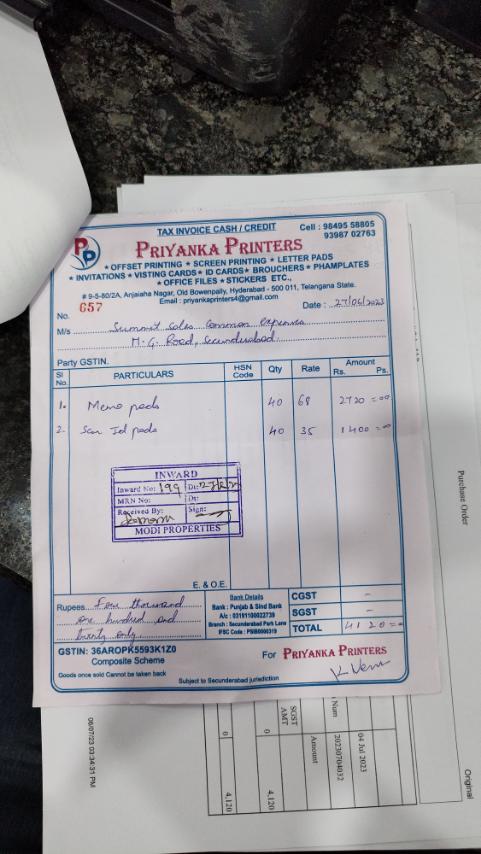 TAX INVOICE CASH / CREDIT
Cell : 98495 58805
93987 02763
PP
PRIYANKA PRINTERS
★ OFFSET PRINTING ★ SCREEN PRINTING ★ LETTER PADS
★ INVITATIONS ★ VISTING CARDS ★ ID CARDS ★ BROUCHERS ★ PHAMPLATES
★ OFFICE FILES ★ STICKERS ETC.,
# 9-5-80/2A, Anjaiaha Nagar, Old Bowenpally, Hyderabad - 500 011, Telangana State.
Email : priyankaprinters4@gmail.com
No. 657
Date : 27/06/2023
M/s Summit sales Common expenses
M.G. Road, Secunderabad
Party GSTIN.
Sl No. PARTICULARS HSN Code Qty Rate Amount Rs. Ps.
1. Memo pads 40 68 2720 =00
2. Id pads 40 35 1400 =00
INWARD
Inward No: 199 Dt:
MRN No: Dt:
Received By: Sign:
MODI PROPERTIES
E. & O.E.
Rupees Four thousand
one hundred and
twenty only
Bank Details
Bank : Punjab & Sind Bank
A/c : 03191100022739
Branch : Secunderabad Park Lane
IFSC Code : PSIB0000319
CGST -
SGST -
TOTAL 4120 =00
GSTIN: 36AROPK5593K1Z0
Composite Scheme
For PRIYANKA PRINTERS
Goods once sold Cannot be taken back
Subject to Secunderabad jurisdiction
Purchase Order
Original
06/07/23 03:34:31 PM
Num
20230704032
04 Jul 2023
SGST AMT
Amount
0
4,120
0
4,120